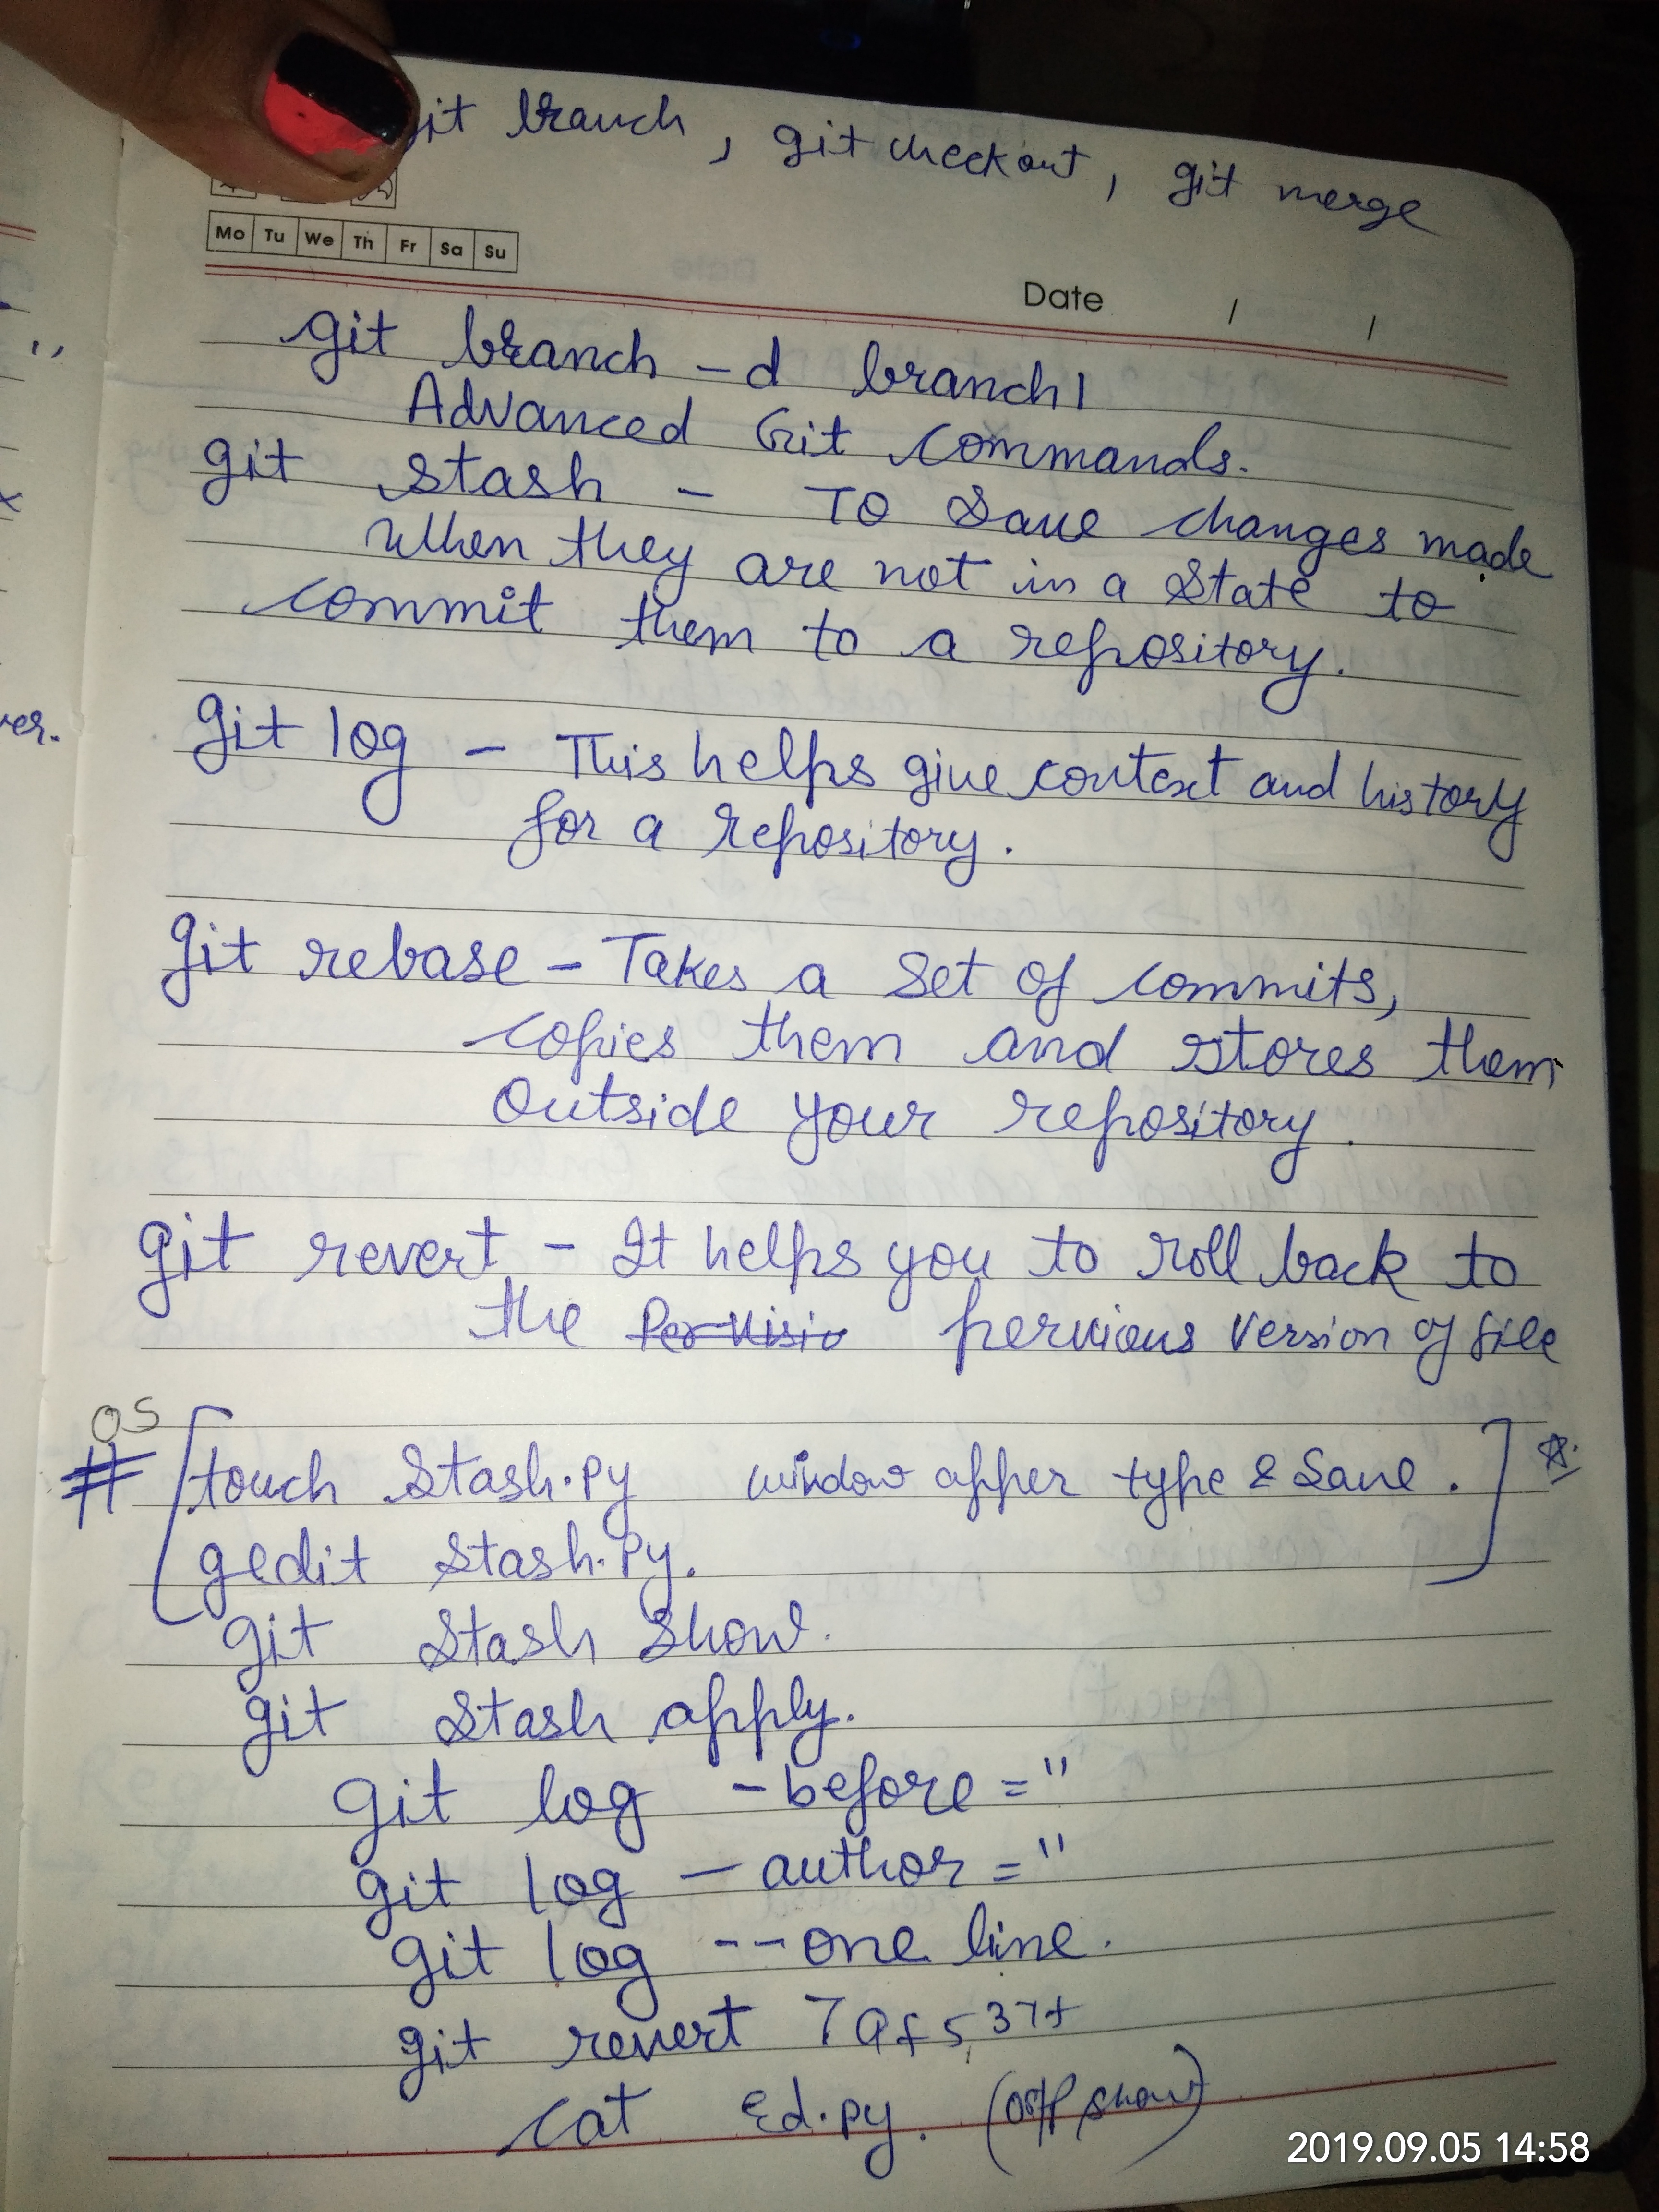 git branch, git checkout, git merge
Mo Tu We Th Fr Sa Su
Date / /
git branch -d branch1
Advanced Git commands.
git stash - To Save changes made
when they are not in a State to
commit them to a repository.
git log - This helps give context and history
for a repository.
git rebase - Takes a Set of commits,
copies them and stores them
Outside your repository.
git revert - It helps you to roll back to
the pervious version of file
OS
# [touch Stash.py window apper type & Save.]
gedit Stash.Py.
git Stash Show.
git Stash apply.
git log -before="
git log -author="
git log --one line.
git revert
cat Ed.py.
ver.
2019.09.05 14:58